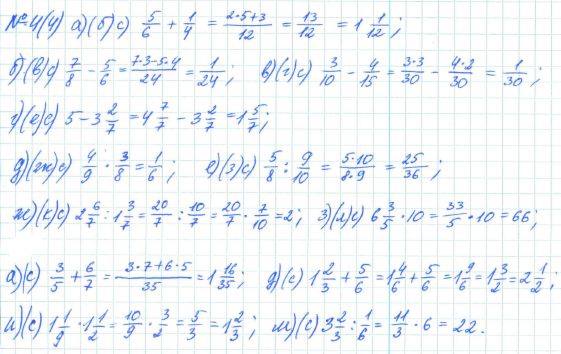 № 4(4) а)(б)с) 5/6 + 1/4 = (2·5+3)/12 = 13/12 = 1 1/12;
б)(в)с) 7/8 - 5/6 = (7·3-5·4)/24 = 1/24; в)(г)с) 3/10 - 4/15 = (3·3)/30 - (4·2)/30 = 1/30;
г)(е)с) 5 - 3 2/7 = 4 7/7 - 3 2/7 = 1 5/7;
д)(ж)с) 4/9 · 3/8 = 1/6; е)(з)с) 5/8 : 9/10 = (5·10)/(8·9) = 25/36;
ж)(к)с) 2 6/7 : 1 3/7 = 20/7 : 10/7 = 20/7 · 7/10 = 2; з)(л)с) 6 3/5 · 10 = 33/5 · 10 = 66;
а)(с) 3/5 + 6/7 = (3·7+6·5)/35 = 1 16/35; д)(с) 1 2/3 + 5/6 = 1 4/6 + 5/6 = 1 9/6 = 1 3/2 = 2 1/2;
и)(с) 1 1/9 · 1 1/2 = 10/9 · 3/2 = 5/3 = 1 2/3; м)(с) 3 2/3 : 1/6 = 11/3 · 6 = 22.